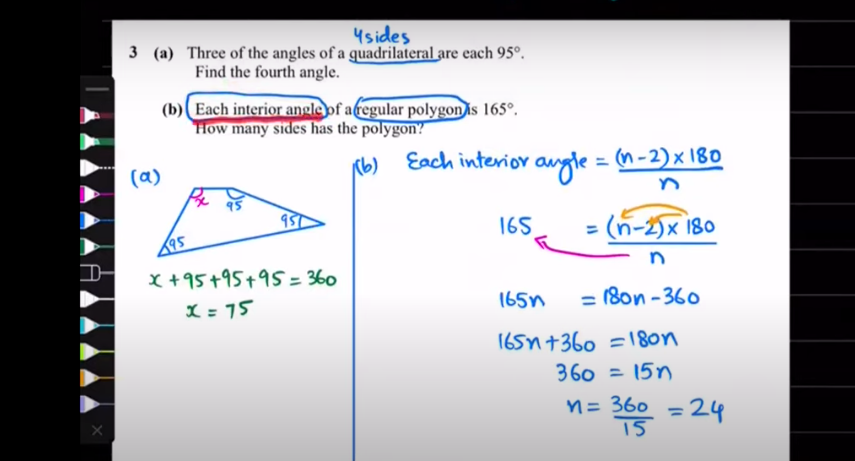 4sides
3 (a) Three of the angles of a quadrilateral are each 95°.
Find the fourth angle.
(b) Each interior angle of a regular polygon is 165°.
How many sides has the polygon?
(a)
x 95
95
95
x + 95 + 95 + 95 = 360
x = 75
(b) Each interior angle = (n-2) × 180
n
165 = (n-2) × 180
n
165n = 180n - 360
165n + 360 = 180n
360 = 15n
n = 360 = 24
15